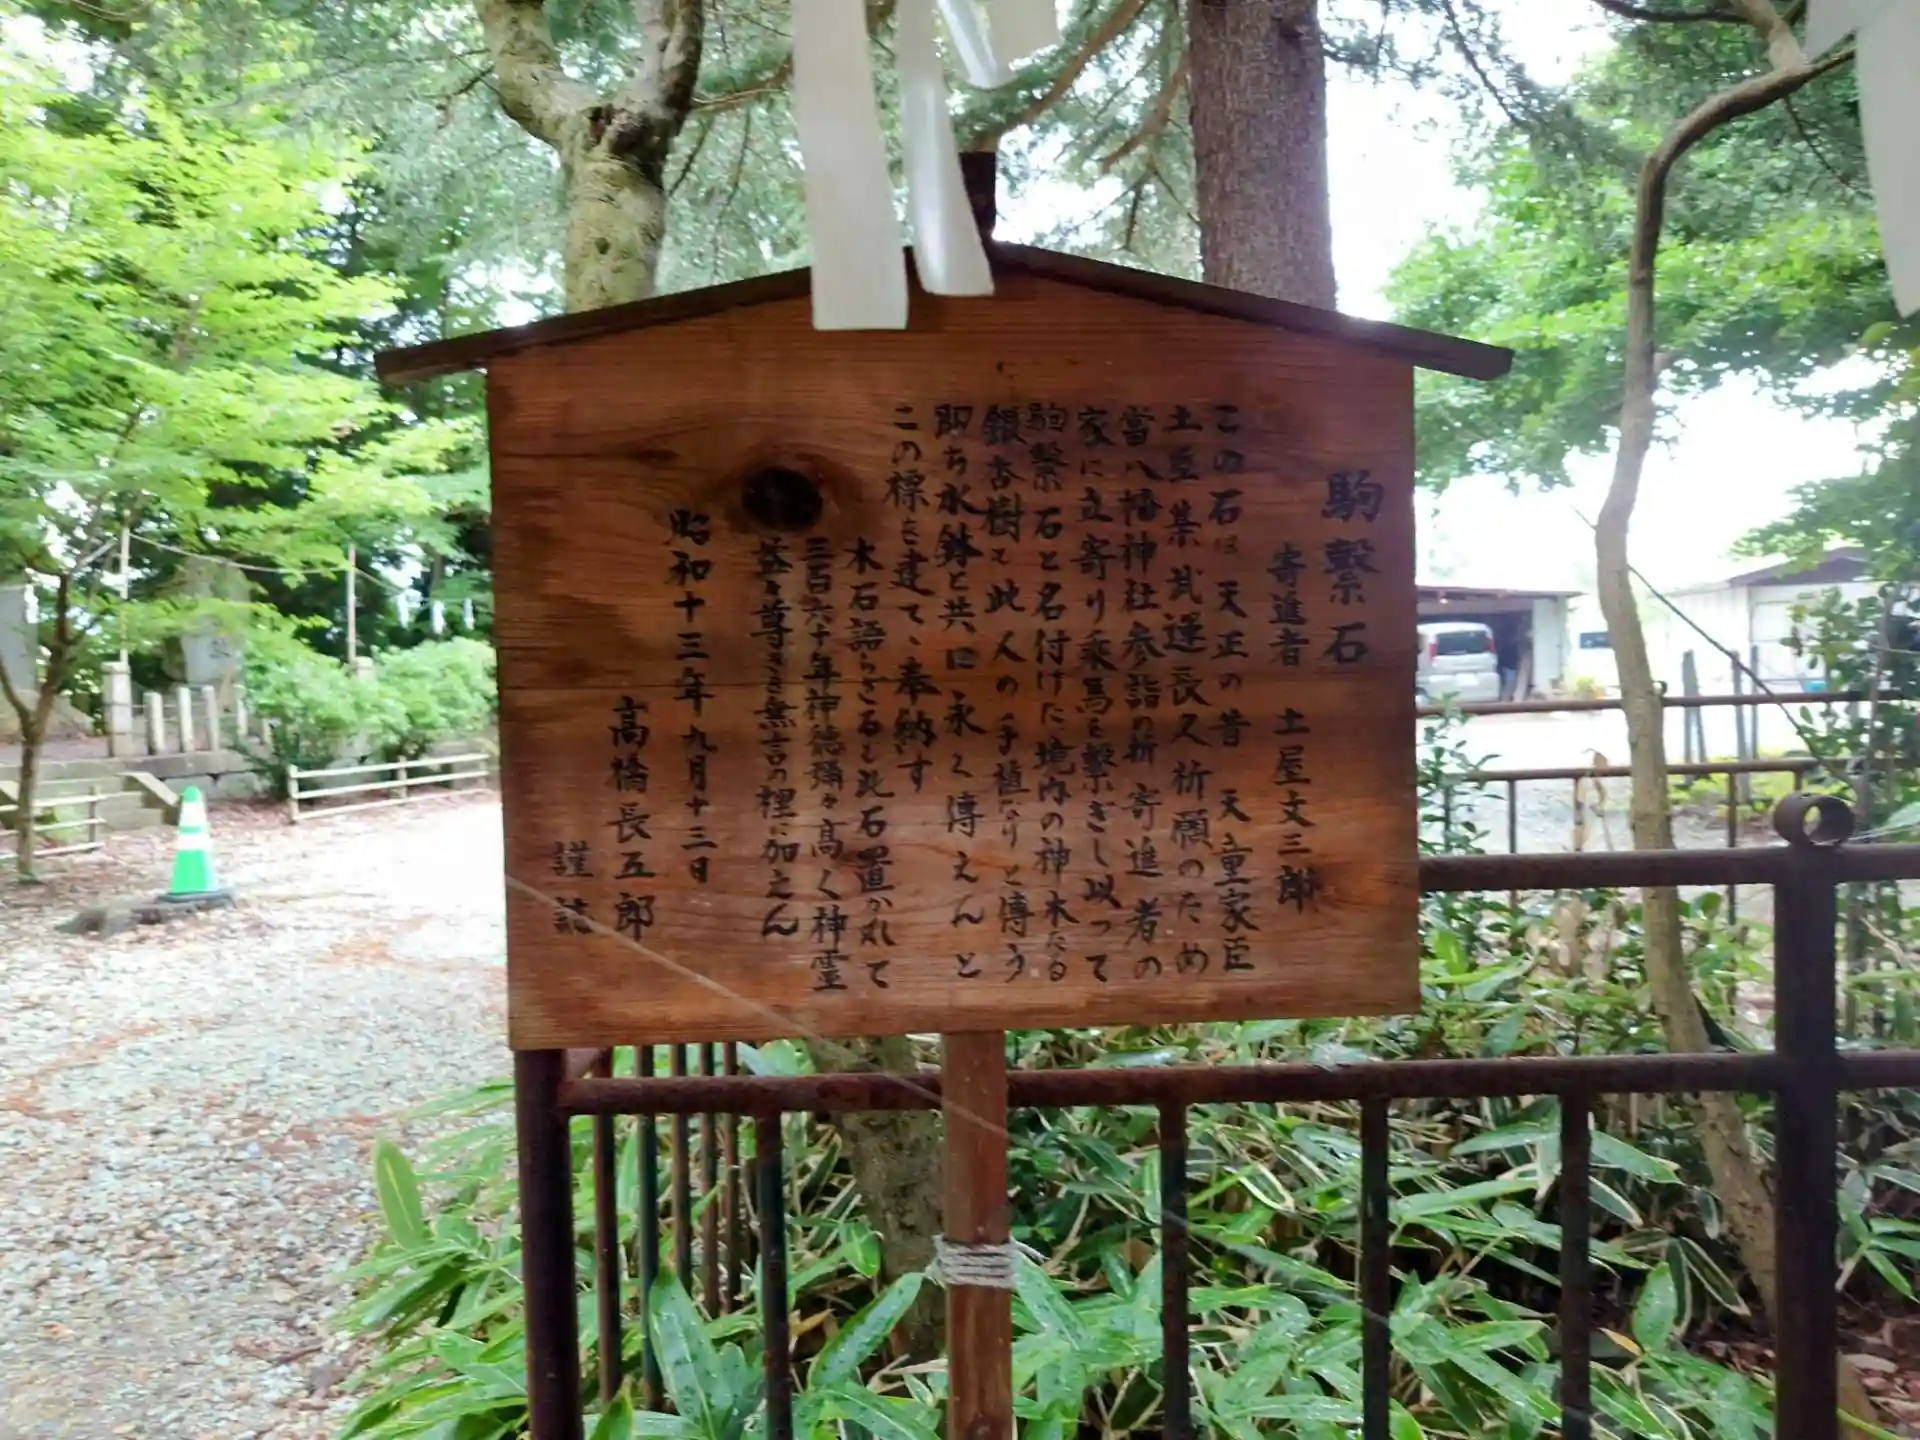 駒繫石
寄進者 土屋文三郎
この石は 天正の昔 天童家臣
土屋某武運長久祈願のため
當八幡神社参詣の折 寄進者の
家に立寄り乘馬を繫ぎし以って
駒繫石と名付けた境内の神木たる
銀杏樹は此人の手植なりと傳う
即ち水鉢と共に永く傳えんと
この標を建て、奉納す
木石語らざるも此石置かれて
三百六十年神徳彌々高く神霊
益々尊きを無言の裡に加えん
昭和十三年九月十三日
高橋長五郎
謹誌